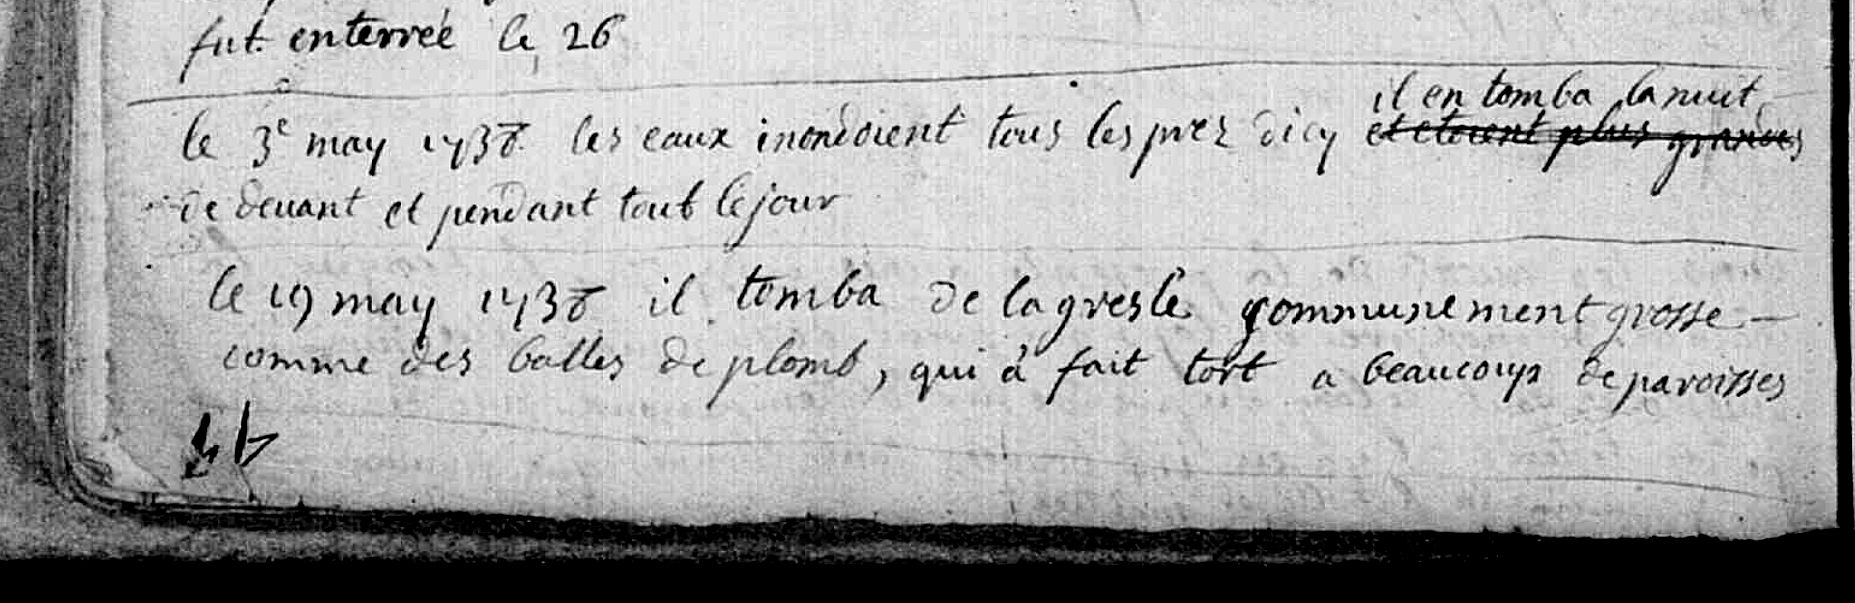 fut enterreé le 26
il en tomba la nuit
le 3e may 1738 les eaux inondoient tous les prez dicy et etoient plus grandes
de devant et pendant tout le jour
le 19 may 1738 il tomba de la gresle communement grosse
comme des balles de plomb, qui à fait tort a beaucoup de paroisses